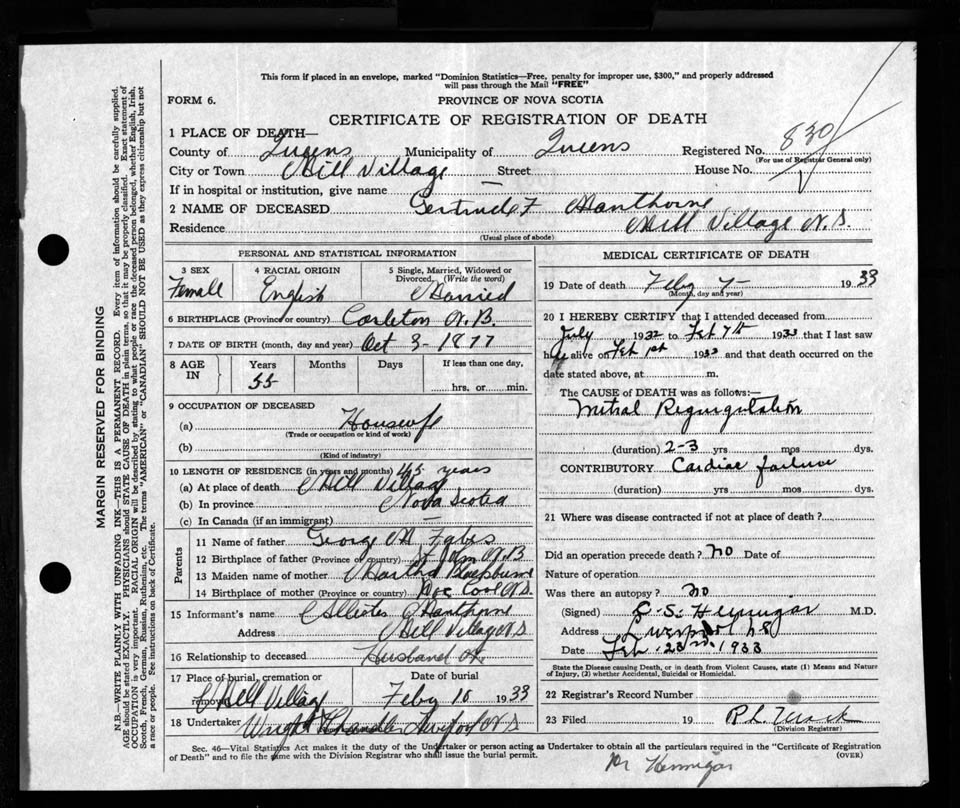 This form if placed in an envelope, marked "Dominion Statistics—Free, penalty for improper use, $300," and properly addressed
will pass through the Mail "FREE"
FORM 6.
PROVINCE OF NOVA SCOTIA
CERTIFICATE OF REGISTRATION OF DEATH
1 PLACE OF DEATH—
County of Queens Municipality of Queens Registered No. 830
(For use of Registrar General only)
City or Town Mill Village Street — House No.
If in hospital or institution, give name
2 NAME OF DECEASED Gertrude F Manthorne
Residence Mill Village N.S.
(Usual place of abode)
PERSONAL AND STATISTICAL INFORMATION
3 SEX Female
4 RACIAL ORIGIN English
5 Single, Married, Widowed or Divorced. (Write the word) Married
6 BIRTHPLACE (Province or country) Carleton N.B.
7 DATE OF BIRTH (month, day and year) Oct 3 - 1877
8 AGE IN Years 55 Months Days If less than one day, hrs. or min.
9 OCCUPATION OF DECEASED
(a) Housewife
(Trade or occupation or kind of work)
(b)
(Kind of industry)
10 LENGTH OF RESIDENCE (in years and months) 45 years
(a) At place of death Mill Village
(b) In province Nova Scotia
(c) In Canada (if an immigrant) —
Parents
11 Name of father George
12 Birthplace of father (Province or country) N B
13 Maiden name of mother Martha
14 Birthplace of mother (Province or country) N.S.
15 Informant's name Manthorne
Address Mill Village N.S
16 Relationship to deceased Husband
17 Place of burial, cremation or removal Mill Village
Date of burial Feby 10 1933
18 Undertaker Wright Chandler Liverpool N S
MEDICAL CERTIFICATE OF DEATH
19 Date of death Feby 7 - 1933
(Month, day and year)
20 I HEREBY CERTIFY that I attended deceased from
July 1932 to Feb 7th 1933 that I last saw
her alive on Feb 1st 1933 and that death occurred on the
date stated above, at m.
The CAUSE OF DEATH was as follows:
Mitral Regurgitation
(duration) 2-3 yrs mos dys.
CONTRIBUTORY Cardiac failure
(duration) yrs mos dys.
21 Where was disease contracted if not at place of death?
Did an operation precede death? no Date of
Nature of operation
Was there an autopsy? no
(Signed) S. Hennigar M.D.
Address Liverpool N S
Date Feb. 23rd, 1933
State the Disease causing Death, or in death from Violent Causes, state (1) Means and Nature
of Injury, (2) whether Accidental, Suicidal or Homicidal.
22 Registrar's Record Number
23 Filed 19 R L
(Division Registrar)
Sec. 46—Vital Statistics Act makes it the duty of the Undertaker or person acting as Undertaker to obtain all the particulars required in the "Certificate of Registration
of Death" and to file the same with the Division Registrar who shall issue the burial permit. (OVER)
Dr Hennigar
MARGIN RESERVED FOR BINDING
N.B.—WRITE PLAINLY WITH UNFADING INK—THIS IS A PERMANENT RECORD. Every item of information should be carefully supplied.
AGE should be stated EXACTLY. PHYSICIANS should STATE CAUSE OF DEATH in plain terms, so that it may be properly classified. Exact statement of
OCCUPATION is very important. RACIAL ORIGIN will be described by stating to what people or race the deceased person belonged, whether English, Irish,
Scotch, French, German, Russian, Ruthenian, etc. The terms "AMERICAN" or "CANADIAN" SHOULD NOT BE USED as they express citizenship but not
a race or people. See instructions on back of Certificate.